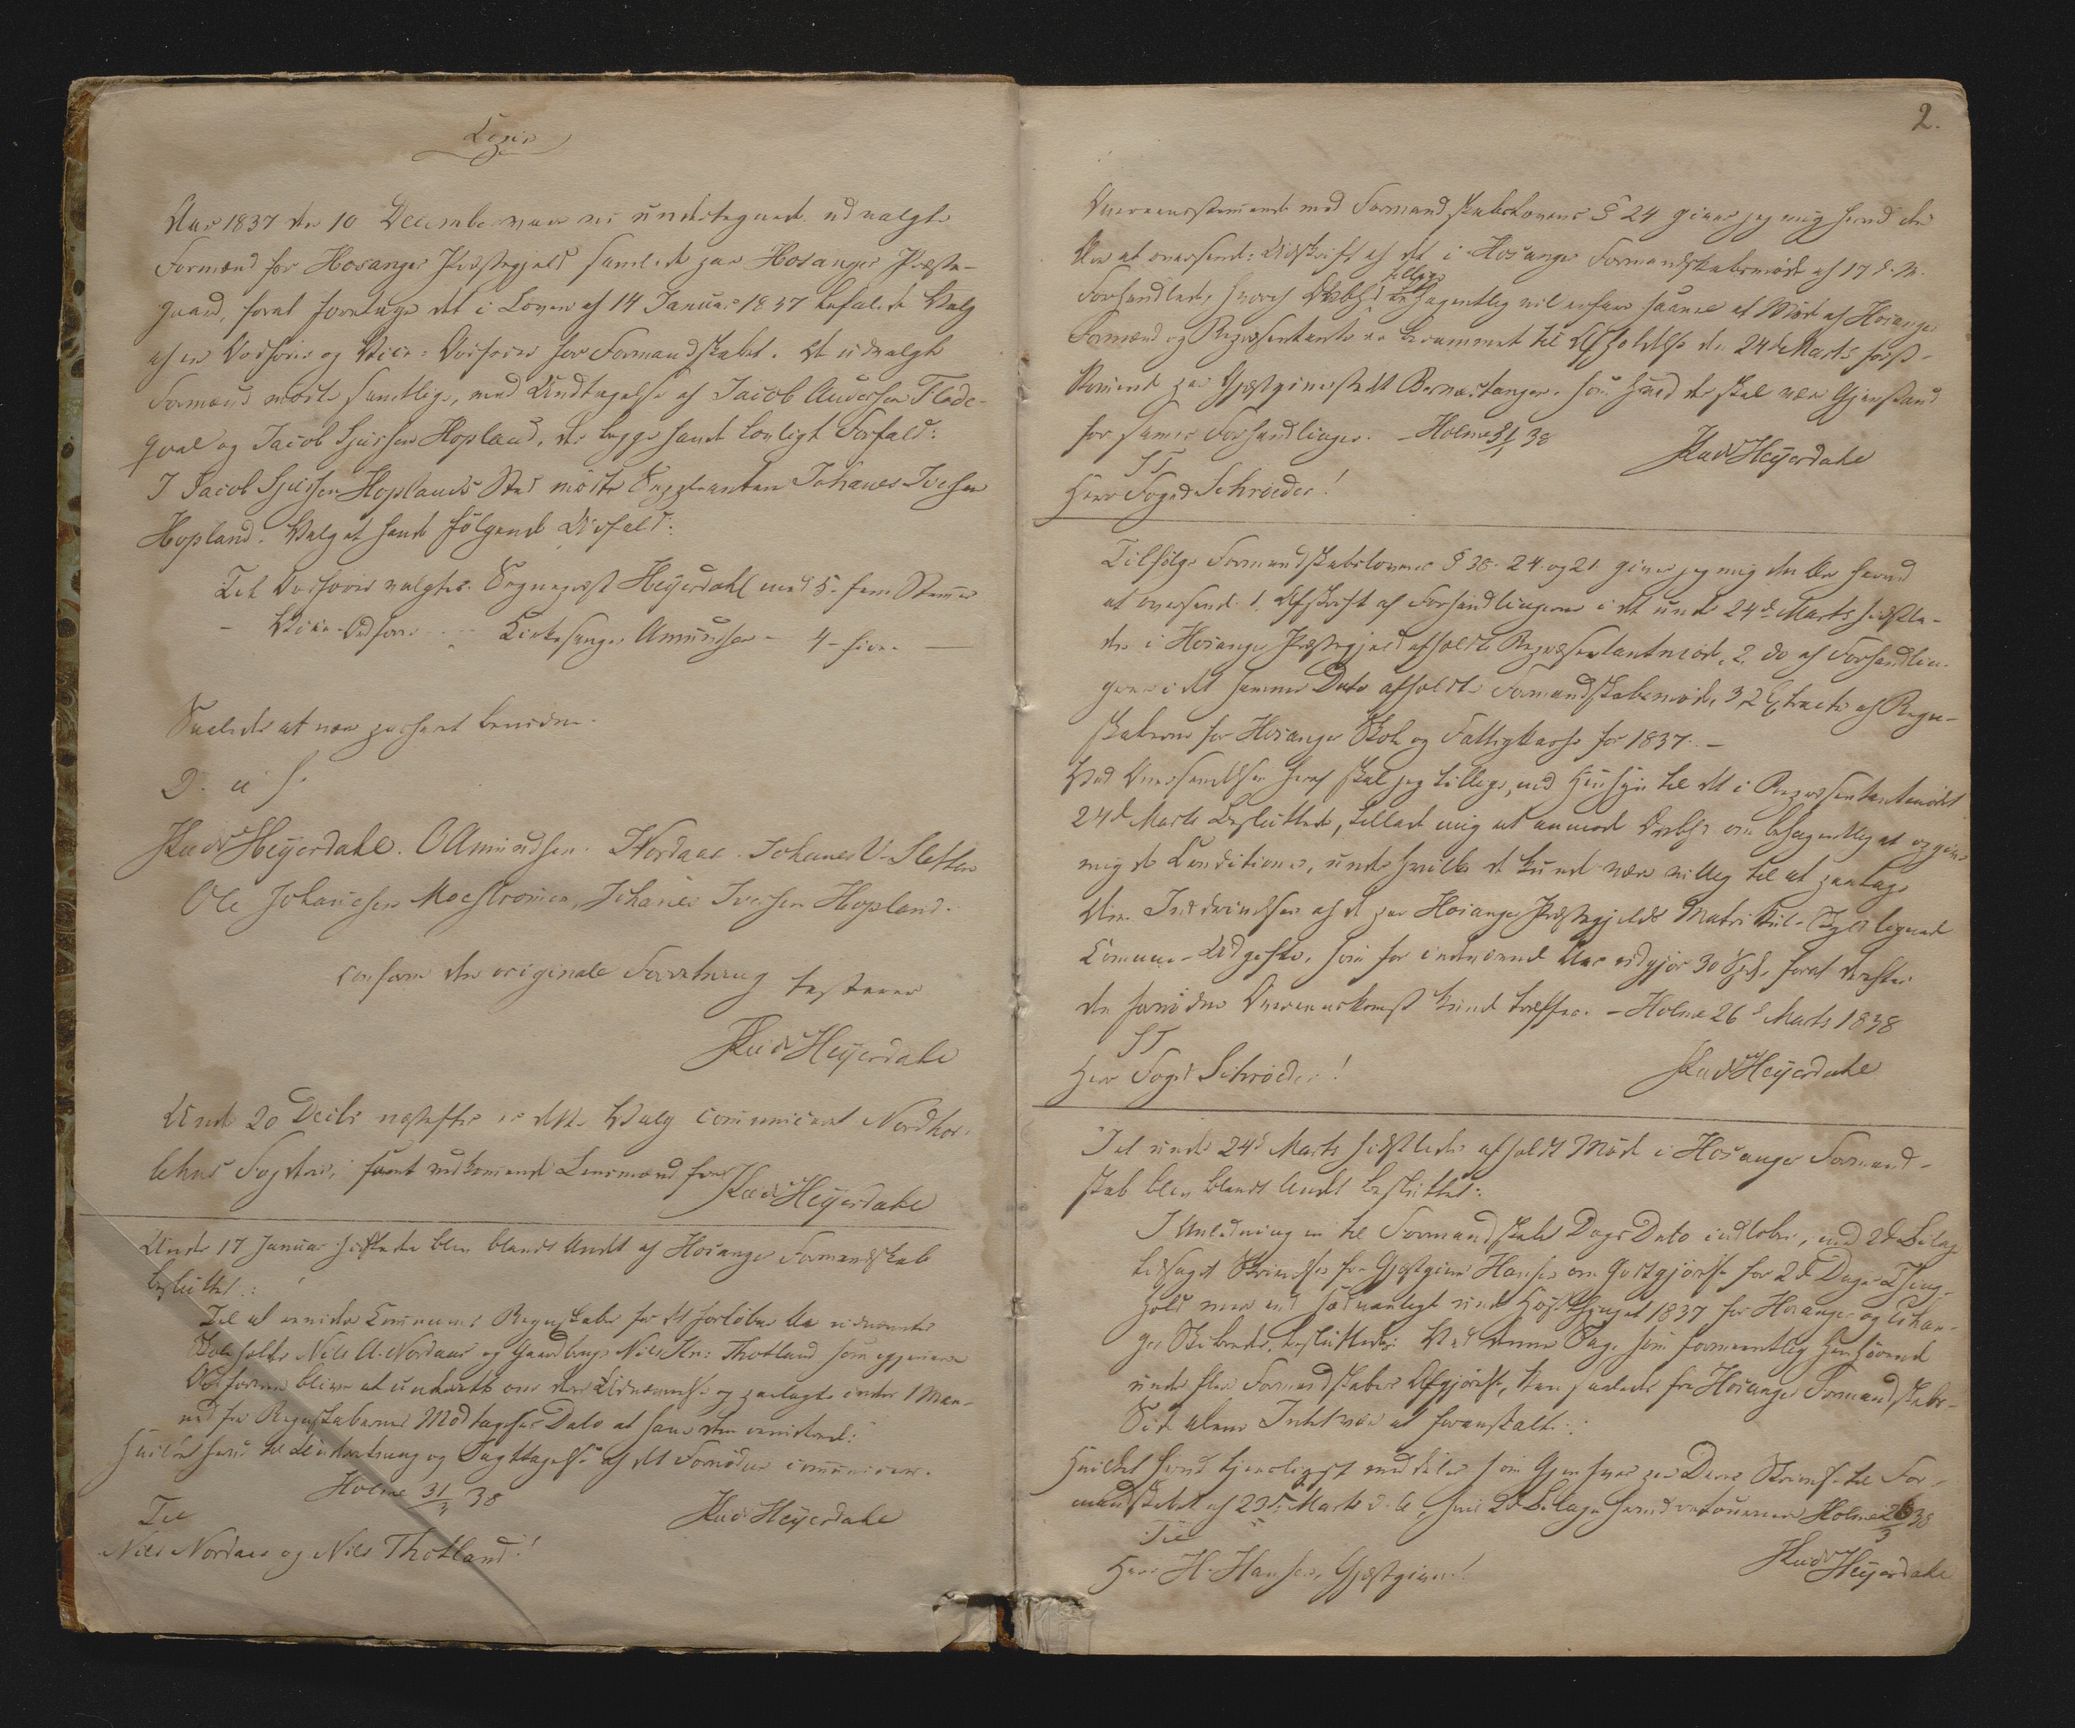 Copie
Aar 1837 den 10 December vare vi undertegnede udvalgte
Formænd for Hosanger Præstegjeld samlede paa Hosanger Præste-
gaard, forat foretage det i Loven af 14 Januar 1837 befalede Valg
af en Ordfører og Vice-Ordfører for Formandskabet. De udvalgte
Formænd mødte samtlige, med Undtagelse af Jacob Andersen Flade-
qval og Jacob Sjursen Hopland, der begge havde lovligt Forfald:
I Jacob Sjursen Hoplands Sted mødte Suppleanten Johannes Iversen
Hopland. Valget havde følgende Udfald:
Til Ordfører valgtes Sognepræst Heyerdahl med 5 - fem Stemmer
- Vice-Ordfører - - Kirkesanger Amundsen - 4 - fire. —
Saaledes at være passeret bevidne.
D. u. s.
Heyerdahl. O Amundsen. Nordaas. Johannes Sletten
Ole Johannesen Mostrømen, Johannes Iversen Hopland.
conform den originale Forretning testerer
Heyerdahl
Under 20 Decbr næstefter er dette Valg communiceret Nordhord-
lehns Fogderie, samt vedkommende Lensmænd fra
Heyerdahl
Under 17 Januar sidstleden blev blandt Andet af Hosanger Formandskab
besluttet:
Til at revidere Communens Regnskaber for det forløbne Aar udnævntes
Skoleholder Nils A. Nordaas og Gaardbruger Nils Thotland som igjennem
Ordføreren bliver at underrette om deres Udnævnelse og paalagte inden 1 Maa-
ned fra Regnskabernes Modtagelses Dato at have dem revideret:
Hvilket herved til Underretning og Iagttagelse af det Fornødne communiceres.
Holme 31/3 38
Heyerdahl
Til
Nils Nordaas og Nils Thotland!
2.
Overeensstemmende med Formandskabslovens § 24 giver jeg mig herved den
Ære at oversende: Udskrift af det i Hosanger Formandskabsmøde af 17 d. M.
Forhandlede, hvoraf
tillige
behageligen vil erfare at Møde af Hosanger
Formænd og Repræsentanter er berammet til Afholdelse den 24de Marts først-
kommende paa Gjæstgiverstedet Bernæstangen, som hvad der skal være Gjenstand
for sammes Forhandlinger. - Holme 38
Heyerdahl
ST
Herr Foged Schrøder!
Tilfølge Formandskabslovens § 38. 24. og 21. giver jeg mig den Ære herved
at oversende 1, Afskrift af Forhandlingerne i det under 24de Marts sidstle-
den i Hosanger Præstegjeld afholdte Repræsentantmøde, 2, do af Forhandlin-
gerne i det samme Dato afholdte Formandskabsmøde, 3, 2 Extracter af Regn-
skaberne for Hosanger Skole og Fattigkasse for 1837. -
Ved Oversendelsen heraf skal jeg tillige, med Hensyn til det i Repræsentantmødet
24de Marts Besluttede, tillade mig at anmode om behageligen at opgive
mig de Conditioner, under hvilke De kunde være villig til at paatage
Dem Inddrivelsen af de paa Hosanger Præstegjelds Matrikul-Skyld lignede
Commune-Udgifter, som for indeværende Aar udgjør 30 Spd., forat derefter
den fornødne Overeenskomst kunde træffes. - Holme 26de Marts 1838
ST
Heyerdahl
Herr Foged Schrøder!
I et under 24de Marts sidstleden afholdt Møde i Hosanger Formand-
skab blev blandt Andet besluttet:
I Anledning en til Formandskabet Dags Dato indløben, med 2de Bilage
ledsaget Skrivelse fra Gjæstgiver Hansen om Godtgjørelse for 2de Dages Thing-
hold mere end sædvanligt under Høstthinget 1837 for Hosanger og Echan-
ger Skibreder, besluttedes: Ved denne Sag, som formeentlig henhørende
under flere Formandskabers Afgjørelse, kan saaledes fra Hosanger Formandskabs
Side alene Intet være at foranstalte.:
Hvilket herved tjenstligst meddeles som Gjensvar paa Deres Skrivelse til For-
mandskabet af 23de Marts d. A., hvis 2de Bilage herved returneres Holme 26/3 38
Til
Heyerdahl
Herr H. Hansen, Gjæstgiver!